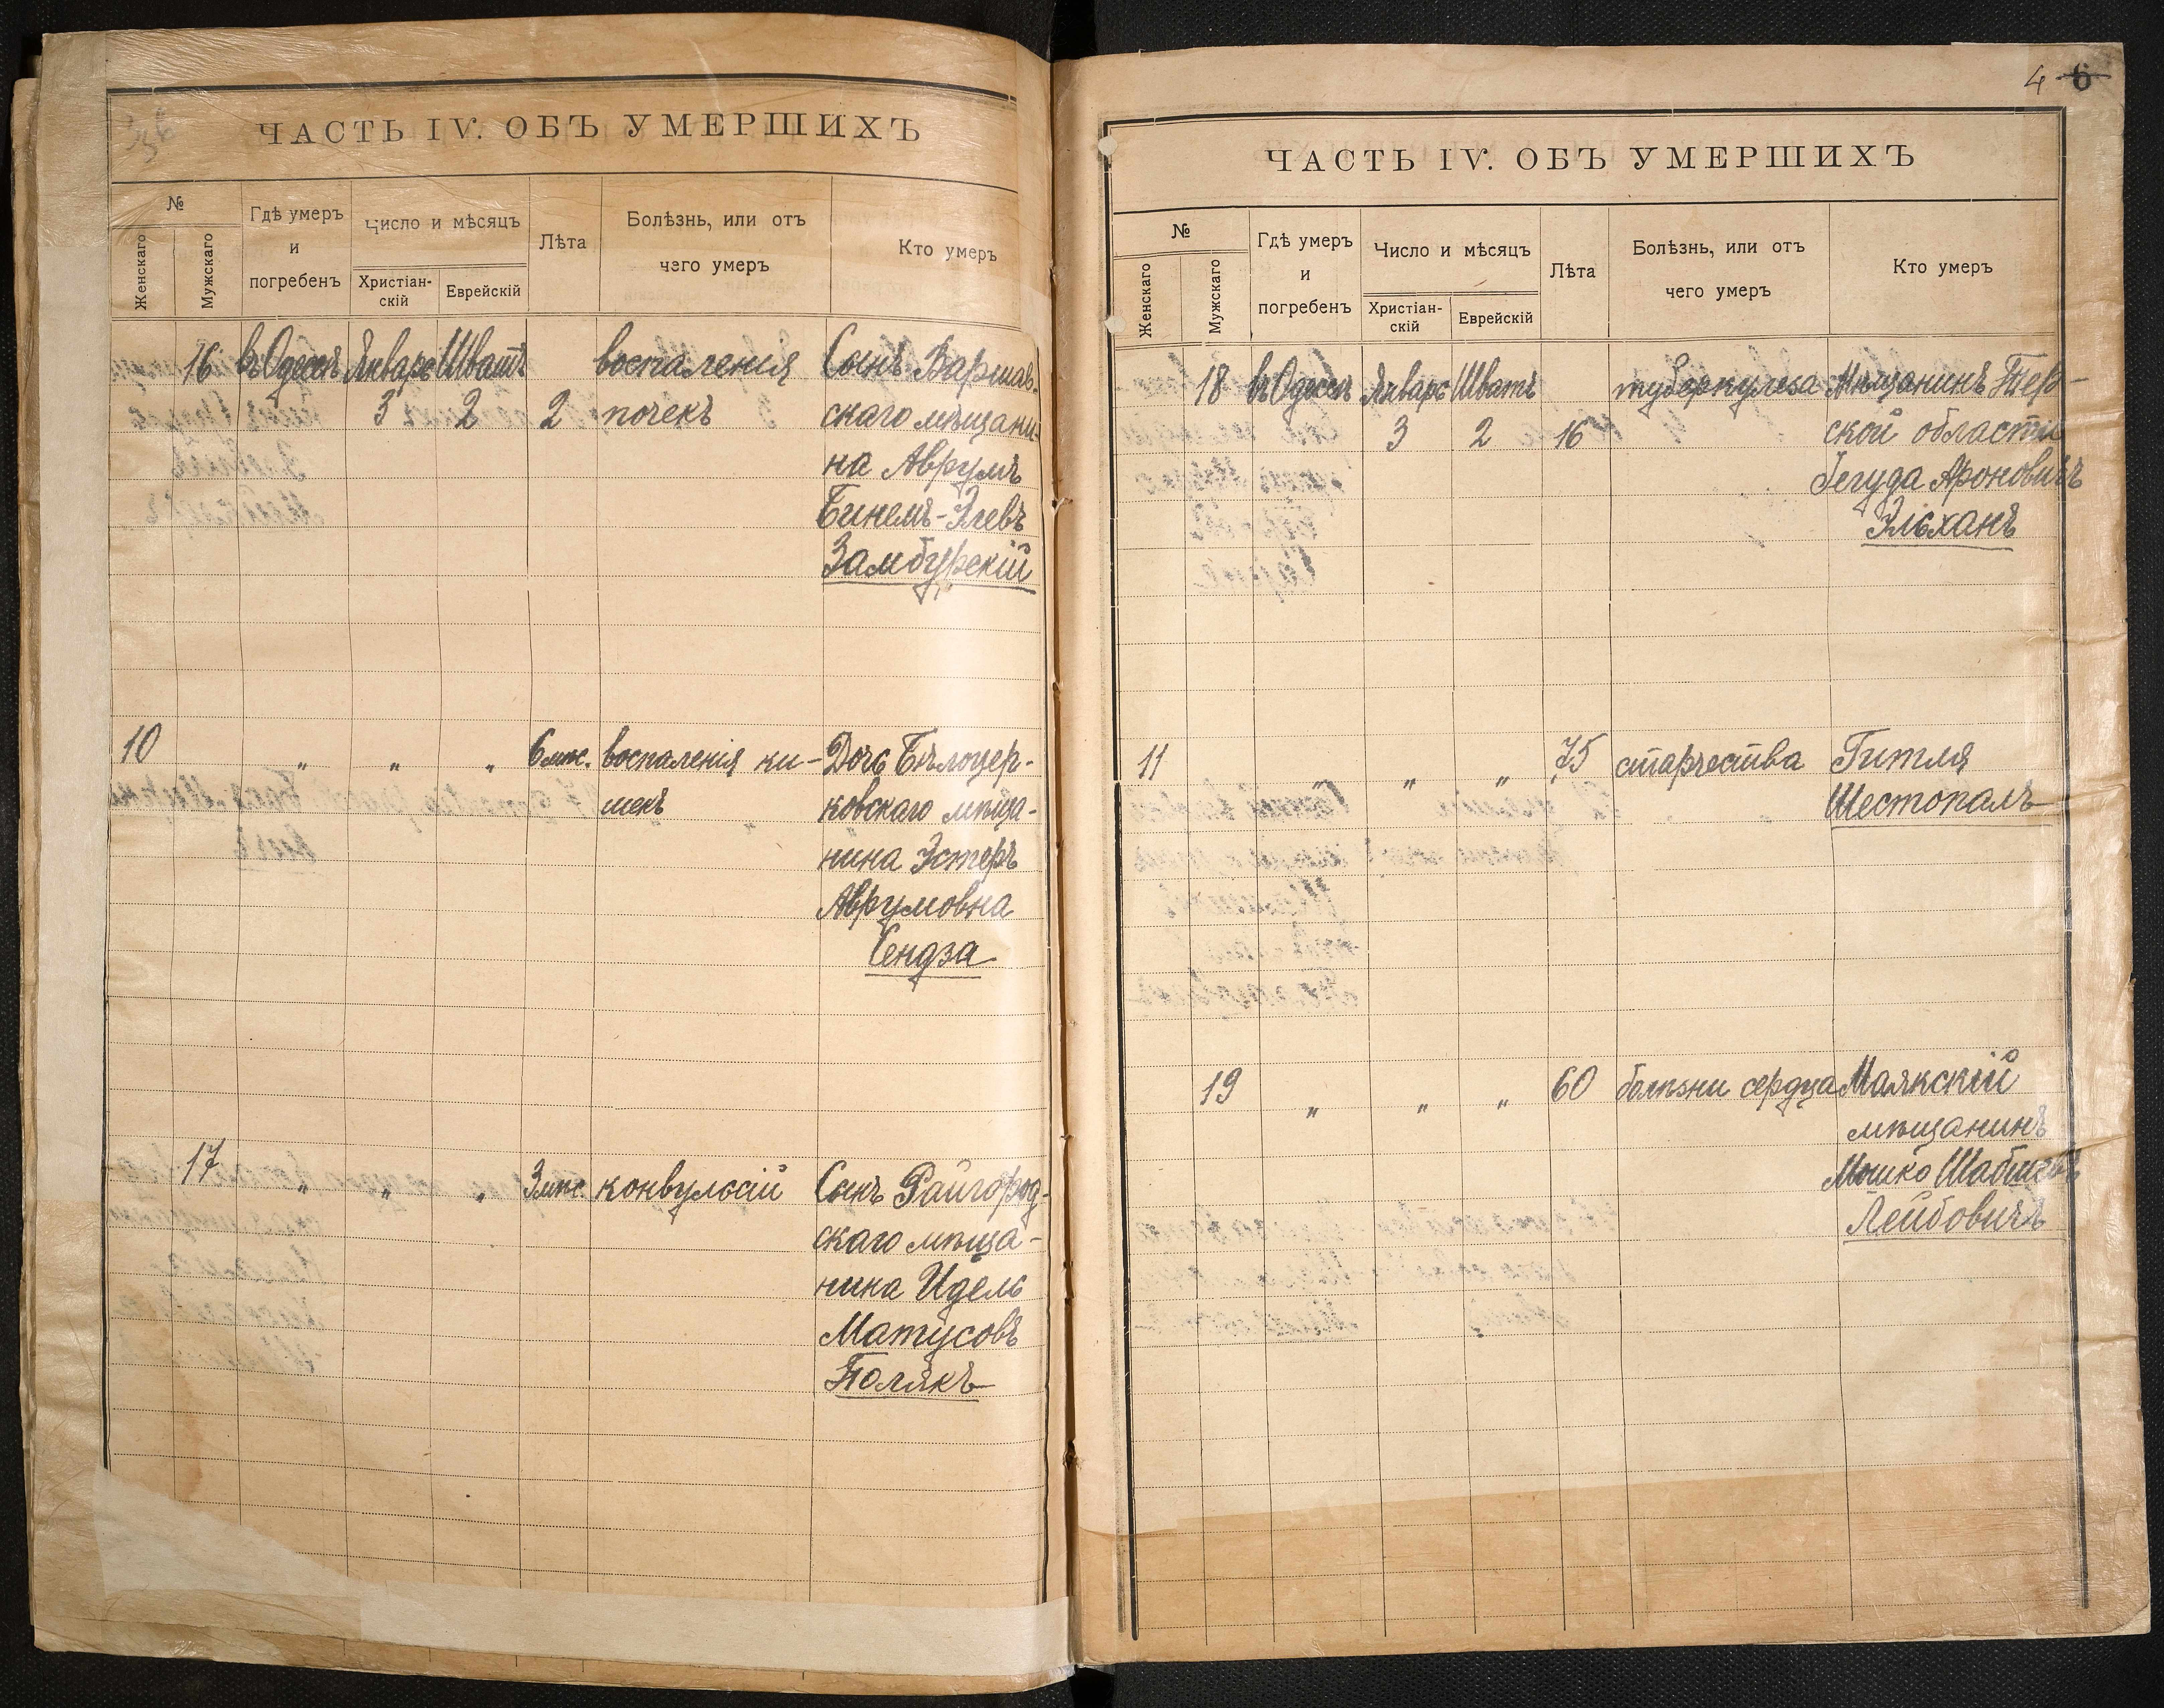 ЧАСТЬ IV. ОБЪ УМЕРШИХЪ
№
Женскаго
Мужскаго
Гдѣ умеръ
и
погребенъ
Число и мѣсяцъ
Христіан-
скій
Еврейскій
Лѣта
Болѣзнь, или отъ
чего умеръ
Кто умеръ
16 въ Одессѣ Январь Шватъ воспаления Сынъ Варшав-
3 2 2 почекъ скаго мѣщани-
на Аврумъ
Бинемъ-Элевъ
Замбурскій
10 " " " 6 мѣс. воспаленія ки- Дочь Бѣлоцер-
шекъ ковскаго мѣща-
нина Эстеръ
Аврумовна
Сендза
17 " " " 3 мѣс. конвульсій Сынъ Райгород-
скаго мѣща-
нина Идель
Матусовъ
Полякъ
4 6
ЧАСТЬ IV. ОБЪ УМЕРШИХЪ
№
Женскаго
Мужскаго
Гдѣ умеръ
и
погребенъ
Число и мѣсяцъ
Христіан-
скій
Еврейскій
Лѣта
Болѣзнь, или отъ
чего умеръ
Кто умеръ
18 въ Одессѣ Январь Шватъ туберкулеза Мѣщанинъ Тер-
3 2 16 ской области
Іегуда Ароновичъ
Эльханъ
11 " " " 75 старчества Гитля
Шестопалъ
19 " " " 60 болѣзни сердца Маякскій
мѣщанинъ
Мошко Шабшевъ
Лейбовичъ